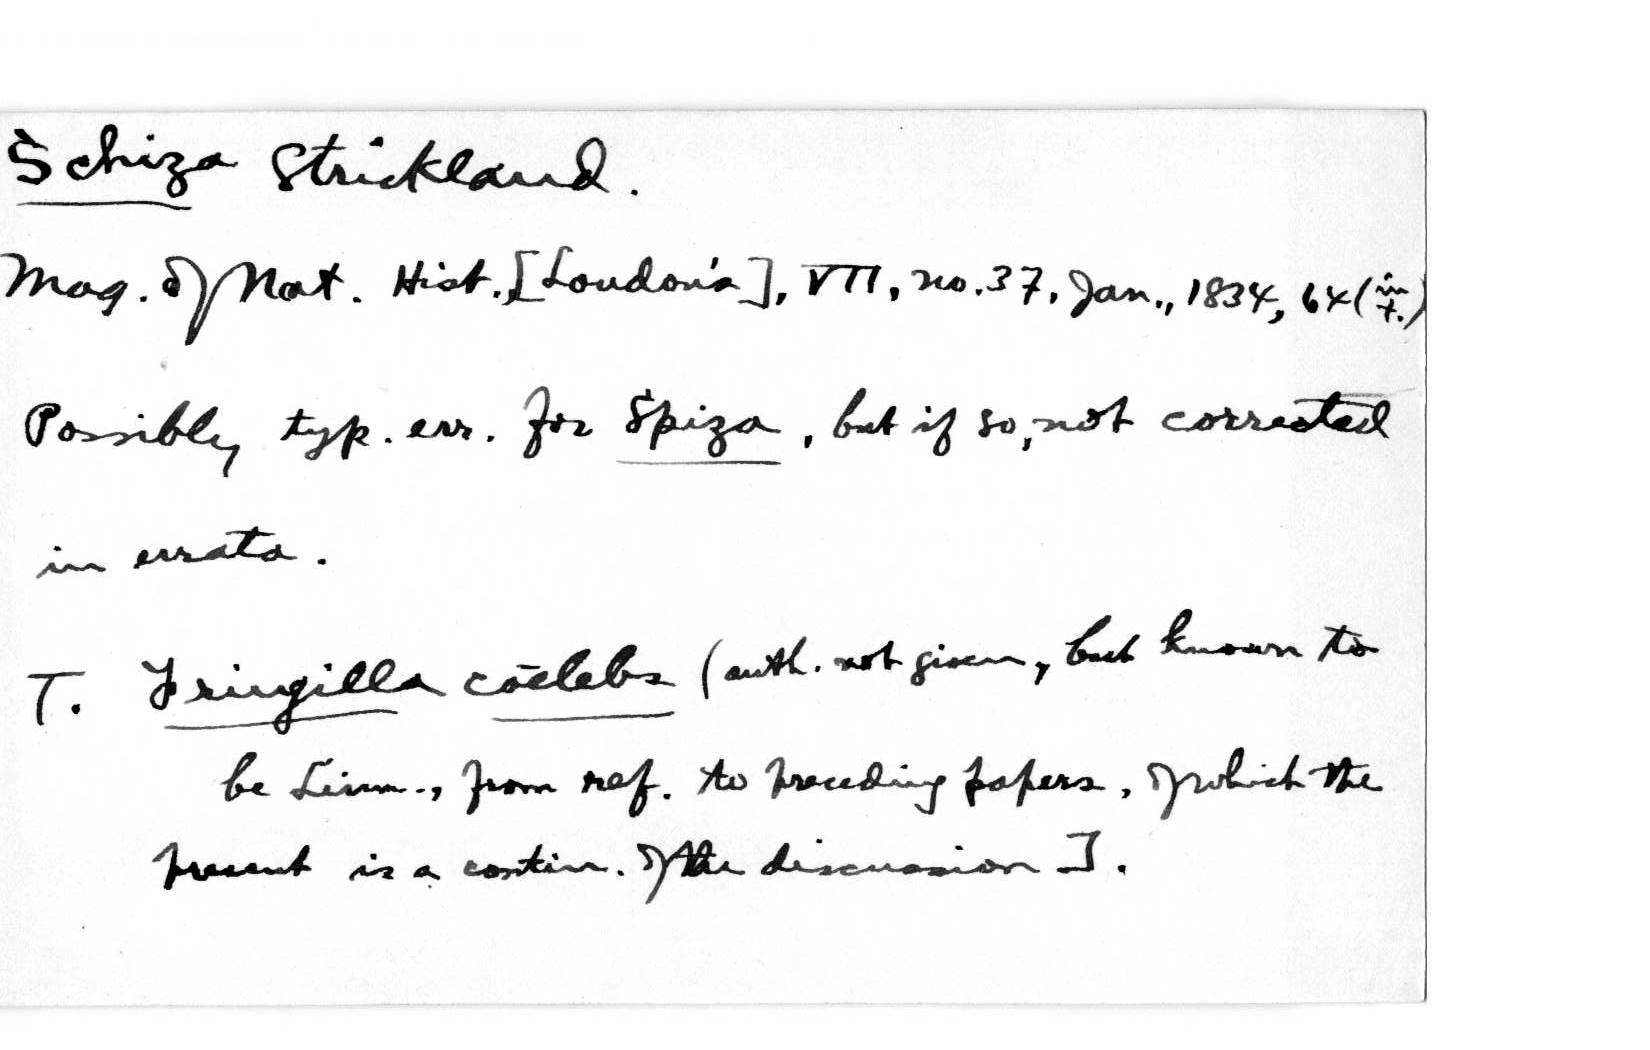 Schiza Strickland.
Mag. of Nat. Hist. [Loudon's], VII, no. 37, Jan., 1834, 64 (in t.)
Possibly typ. err. for Spiza, but if so, not corrected
in errata.
T. Fringilla cœlebs (auth. not given, but known to
be Linn., from ref. to preceding papers, of which the
present is a contin. of the discussion].